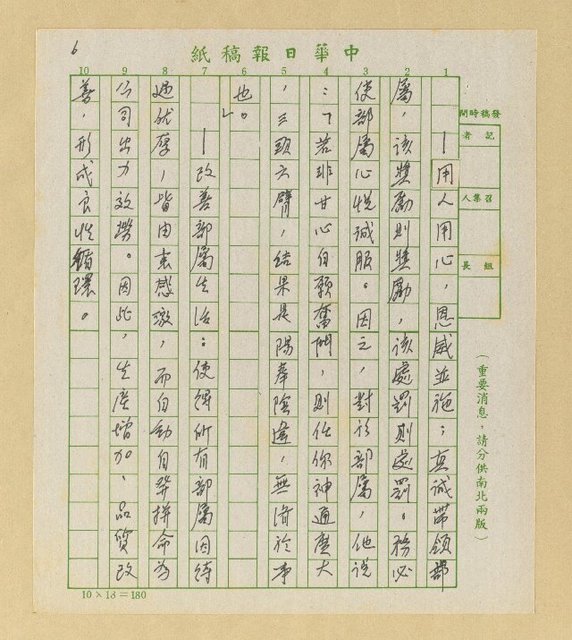 6
中華日報稿紙
1 2 3 4 5 6 7 8 9 10
發稿時間
記者
召集人
組長
（重要消息，請分供南北兩版）
—用人用心，恩威並施：真誠帶領部
屬，該獎勵則獎勵，該處罰則處罰。務必
使部屬心悅誠服。因之，對於部屬，他說
：「若非甘心自願奮鬥，則任你神通廣大
，三頭六臂，結果是陽奉陰違，無濟於事
也」。
—改善部屬生活：使得所有部屬因待
遇優厚，皆由衷感激，而自動自發拼命為
公司出力效勞。因此，生產增加、品質改
善，形成良性循環。
10×18=180